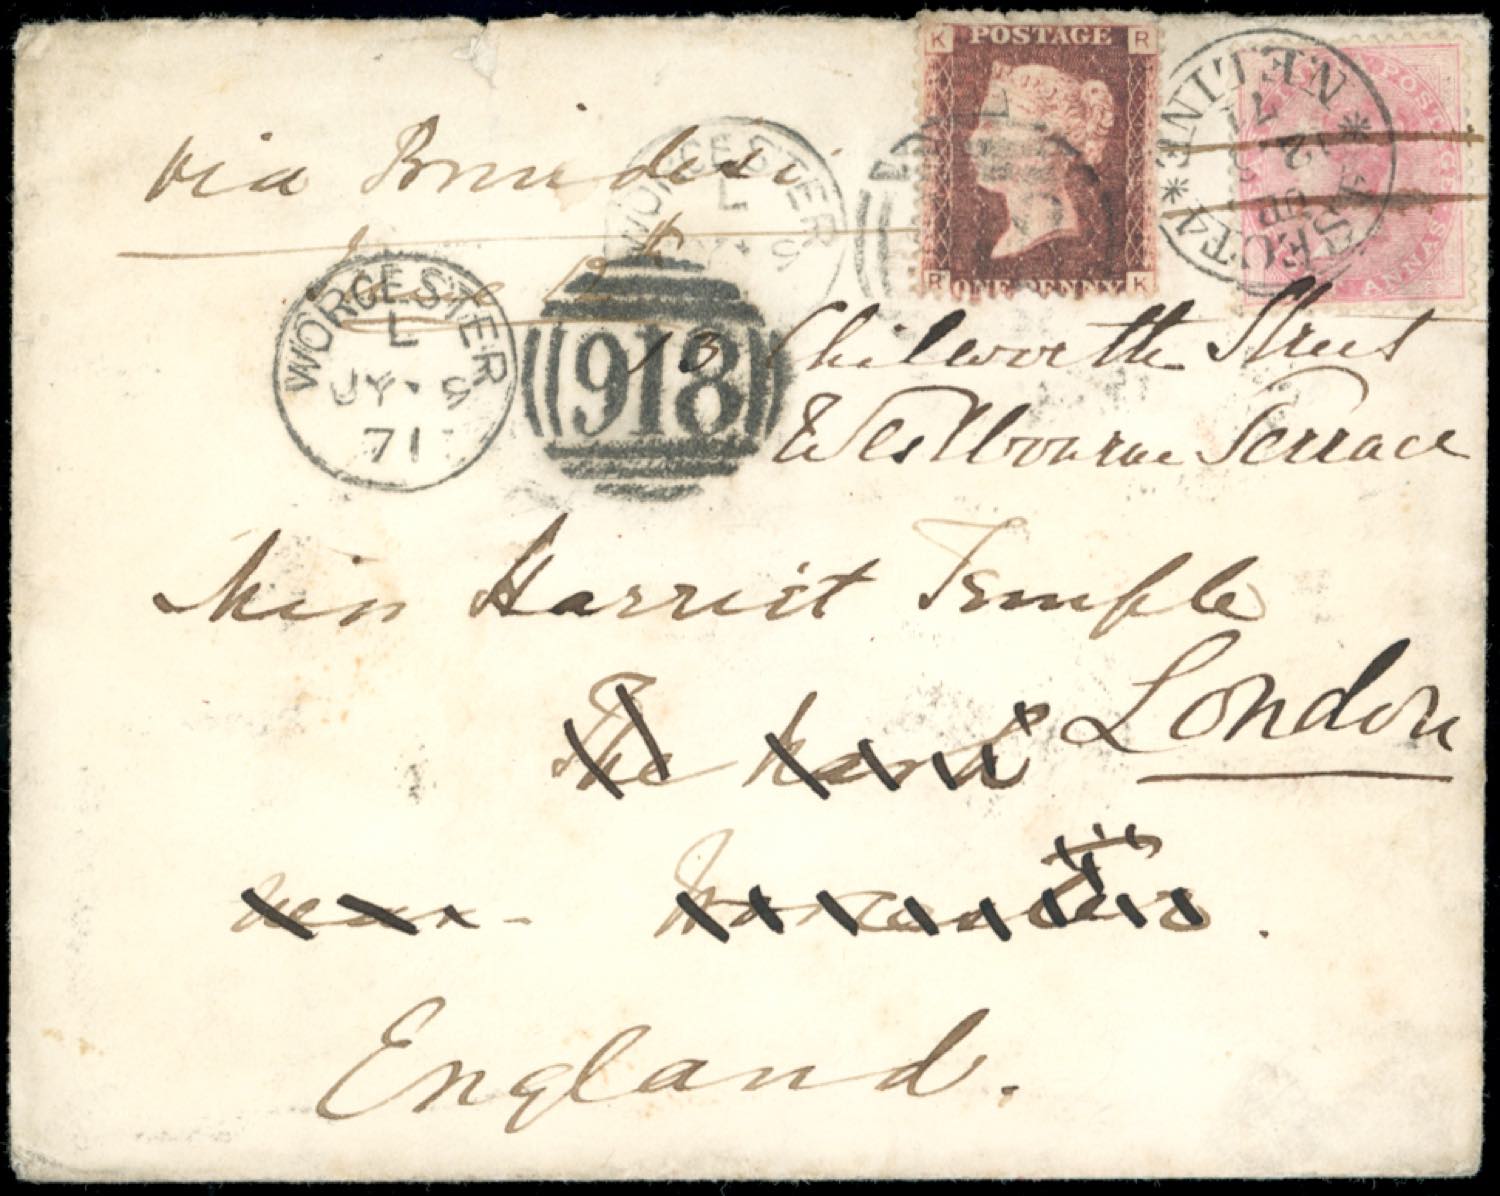 via Brindisi
June 12th
K POSTAGE R
R ONE PENNY K
ANNAS
WORCESTER
L
WORCESTER
L
JY 9
71
918
13 Chilworth Street
Westbourne Terrace
Miss Harriet Temple
The
London
near Worcester
England.